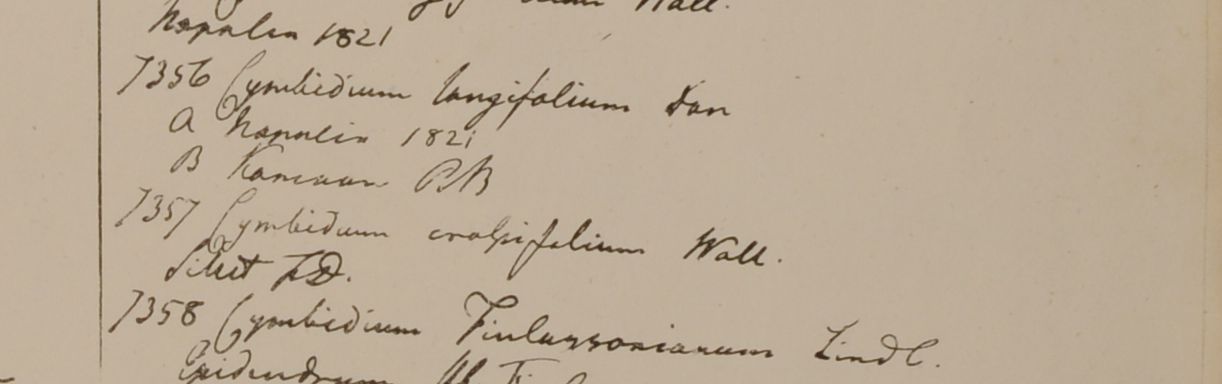 Wall.
Napalia 1821
7356 Cymbidium longifolium Don
a Napalia 1821
B Kamaon RB
7357 Cymbidium crassifolium Wall.
Silhet FD.
7358 Cymbidium Finlaysonianum Lindl.
Epidendrum